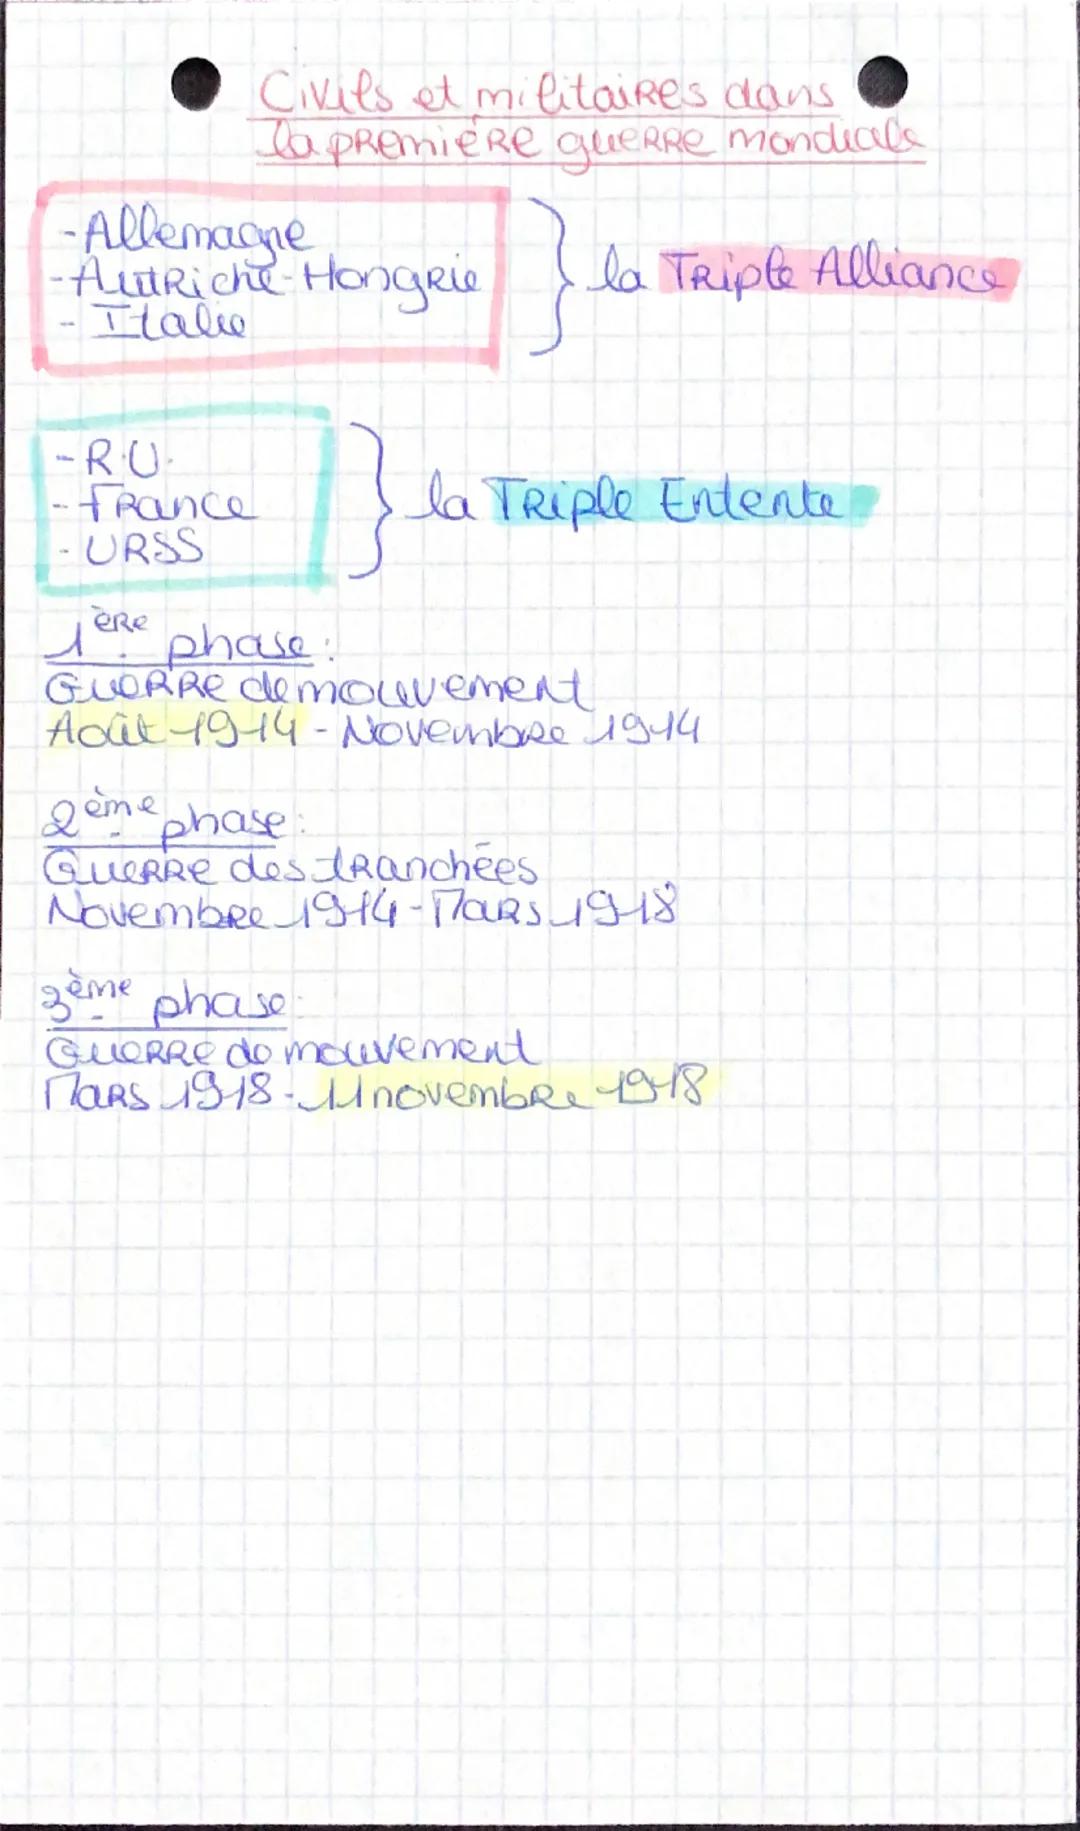 Civils et militaires dans
la première guerre mondiale
- Allemagne
- Autriche-Hongrie
- Italie
la Triple Alliance
- R.U.
- France
- URSS
la Triple Entente
1ère phase:
Guerre de mouvement
Août 1914 - Novembre 1914
2ème phase:
Guerre des tranchées
Novembre 1914 - Mars 1918
3ème phase:
Guerre de mouvement
Mars 1918 - 11 novembre 1918